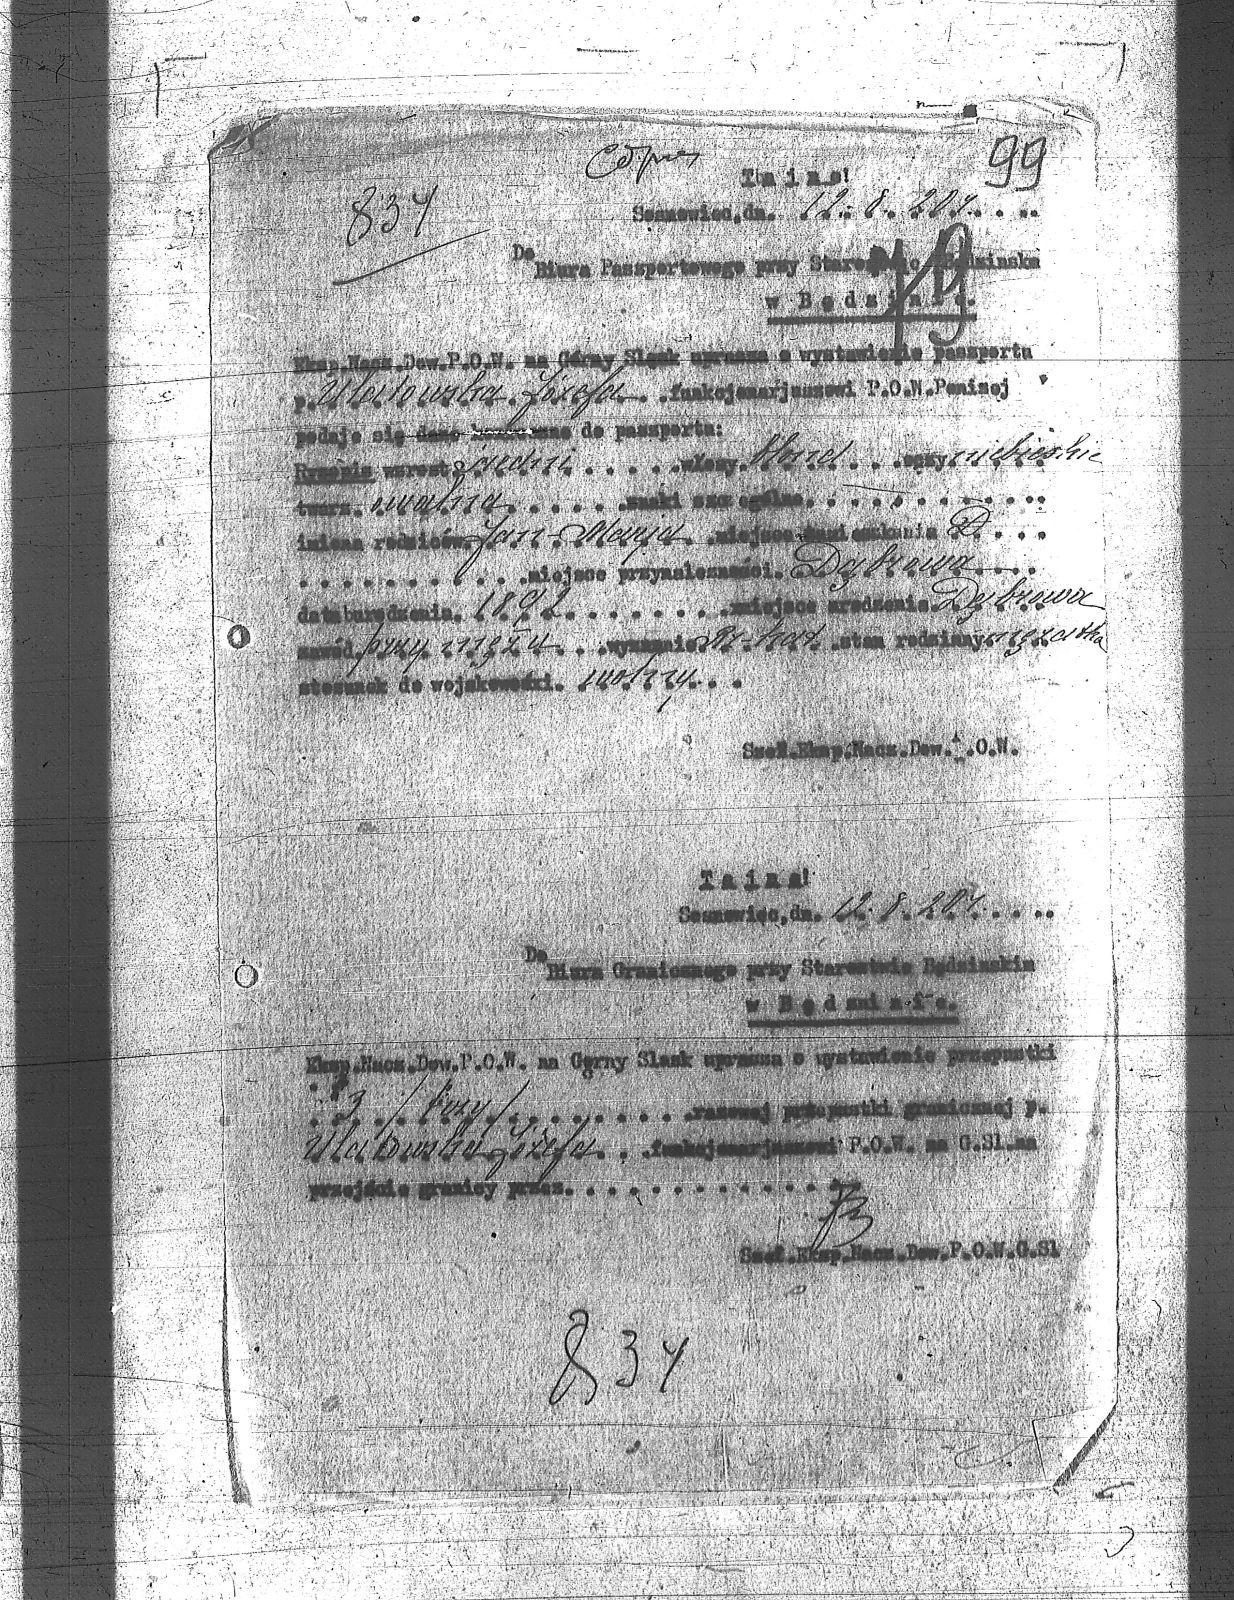 99
T a j n e!
834
Sosnowiec, dn. 12. 8. 20 r.
Do
Biura Passportowego przy Starostwie Będzinska
w B ę d z i n i e.
19
Eksp.Nacz.Dow.P.O.W. na Górny Sląsk uprasza o wystawienie passportu
p. Ulatowska Józefa funkcjonarjuszowi P.O.W.Poniżej
podaje się dane do passportu:
Rysopis wzrost średni włosy blond oczy niebieskie
twarz owalna znaki szczególne
imiona rodziców Jan - Marja miejsce zamieszkania D.
miejsce przynależności Dąbrowa
data urodzenia 1892 miejsce urodzenia Dąbrowa
zawód przy mężu wyznanie R-kat. stan rodzinny mężatka
stosunek do wojskowości wolny
Szef.Eksp.Nacz.Dow.P.O.W.
T a j n e!
Sosnowiec, dn. 12. 8. 20 r.
Do
Biura Granicznego przy Starostwie Będzinskim
w B ę d z i n i e.
Eksp.Nacz.Dow.P.O.W. na Górny Slask uprasza o wystawienie przepustki
3 /trzy/ razowej przepustki granicznej p.
Ulatowska Józefa funkcjonarjuszowi P.O.W. na G.Sl.na
przejście granicy przez
Szef.Eksp.Nacz.Dow.P.O.W.G.Sl
834